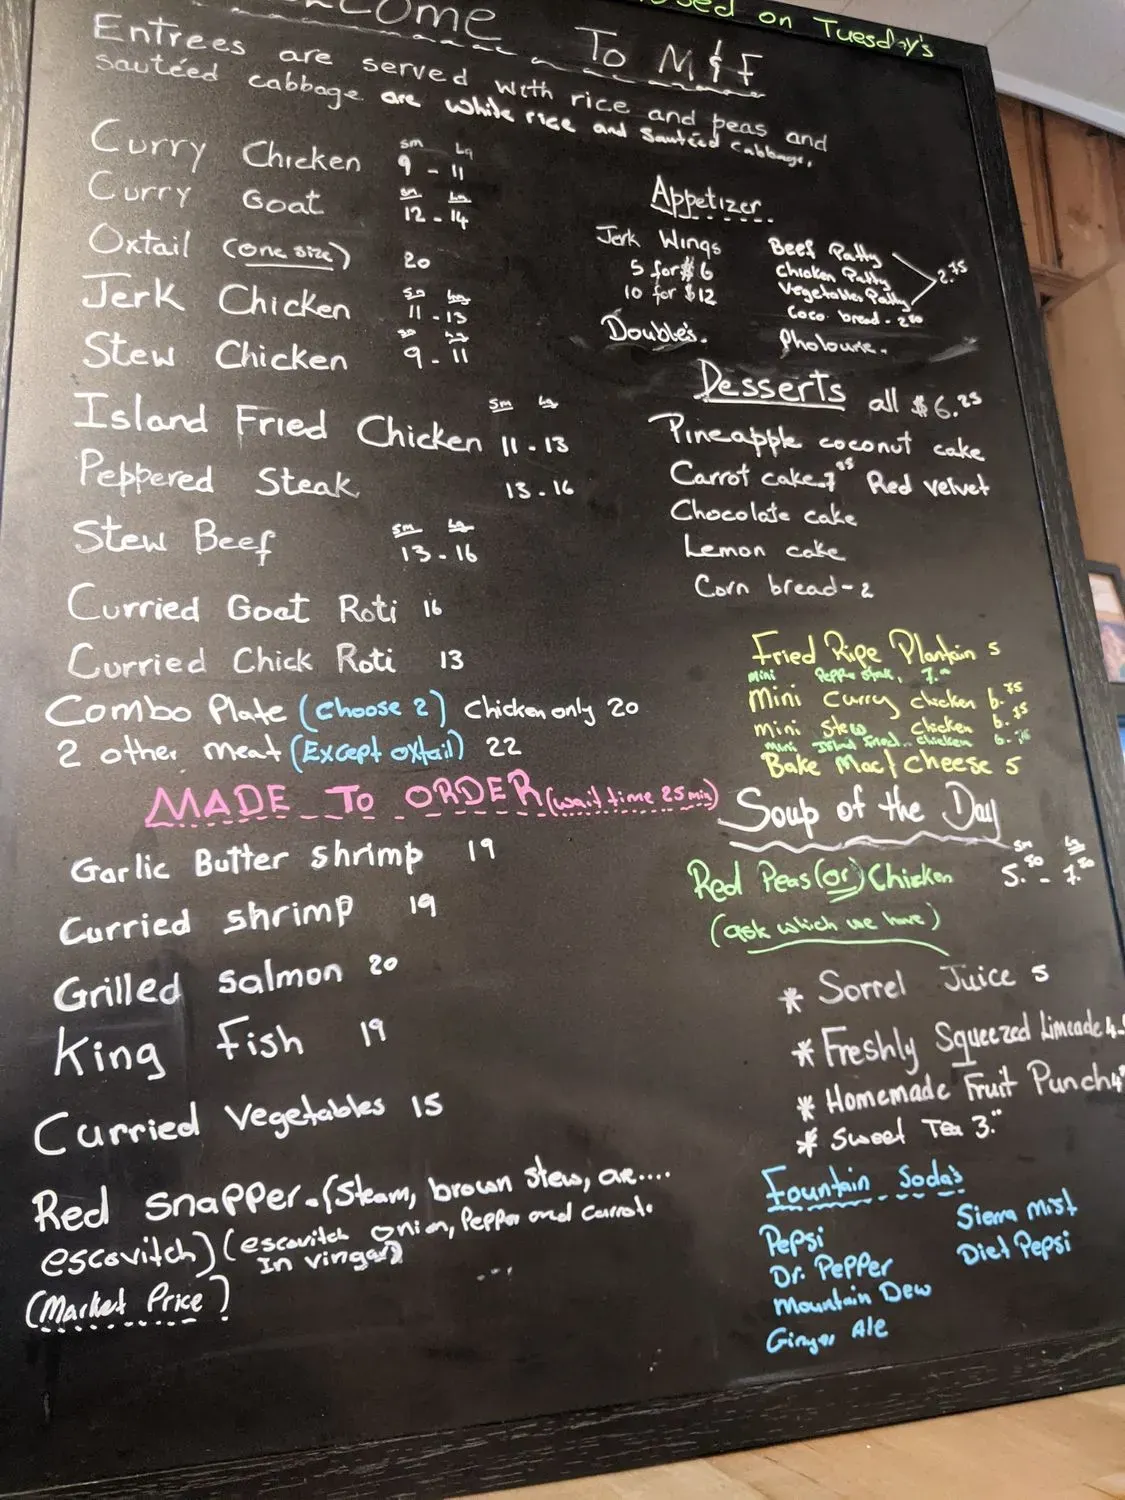 on Tuesday's
To M & F
Entrees are served with rice and peas and
sautéed cabbage are white rice and sautéed cabbage.
Curry Chicken sm 9 - Lg 11
Curry Goat sm 12 - Lg 14
Oxtail (one size) 20
Jerk Chicken sm 11 - Lg 13
Stew Chicken 9 - Lg 11
Island Fried Chicken sm 11 - Lg 13
Peppered Steak 13 - 16
Stew Beef sm 13 - Lg 16
Curried Goat Roti 16
Curried Chick Roti 13
Combo Plate (choose 2) Chicken only 20
2 other meat (Except oxtail) 22
MADE TO ORDER (wait time 25 min)
Garlic Butter shrimp 19
Curried shrimp 19
Grilled salmon 20
King Fish 19
Curried Vegetables 15
Red snapper. (Steam, brown stew, are....
escovitch) (escovitch onion, Pepper and Carrots
In vingar)
(Market Price)
Appetizer
Jerk Wings
5 for $6
10 for $12
Doubles.
Beef Patty
Chicken Patty
Vegetables Patty
2.75
Coco. bread - 2.50
Pholourie.
Desserts all $6.25
Pineapple coconut cake
Carrot cake Red velvet
Chocolate cake
Lemon cake
Corn bread - 2
Fried Ripe Plantain 5
mini Pepper Steak, 7.
Mini Curry chicken 6.75
mini stew chicken 6.
mini Island Fried chicken 6.
Bake Mac & cheese 5
Soup of the Day
Red Peas (or) Chicken sm 5.50 - Lg 7.50
(ask which we have)
* Sorrel Juice 5
* Freshly Squeezed Limeade
* Homemade Fruit Punch
* Sweet Tea 3.
Fountain Soda's
Pepsi
Dr. Pepper
Mountain Dew
Ginger Ale
Sierra Mist
Diet Pepsi